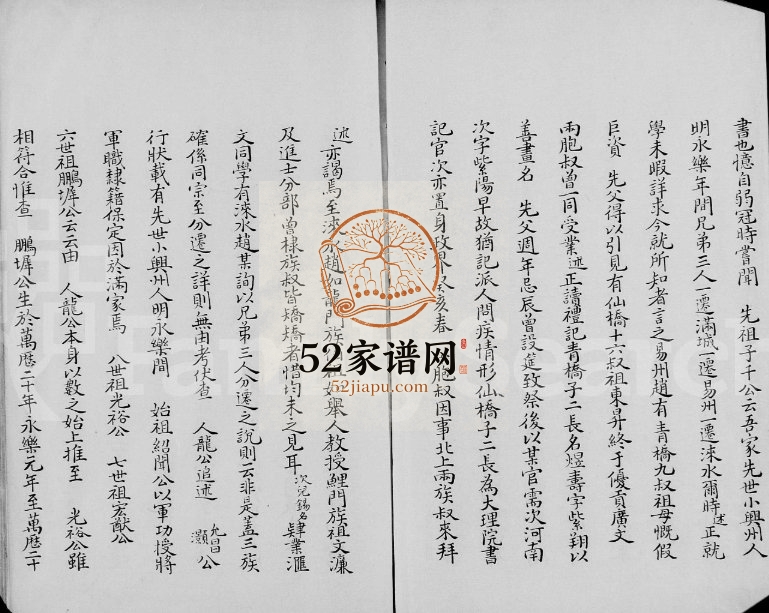 書也憶自弱冠時嘗聞 先祖子千公云吾家先世小興州人
明永樂年間兄弟三人一遷滿城一遷易州一遷淶水爾時述正就
學未暇詳求今就所知者言之易州趙有青橋九叔祖母慨假
巨資 先父得以引見有仙橋十六叔祖東昇終于優貢廣文
兩胞叔曾一同受業述正讀禮記青橋子二長名煜壽字紫翔以
善畫名 先父週年忌辰曾設筵致祭後以某官需次河南
次字紫陽早故猶記派人問疾情形仙橋子二長為大理院書
記官次亦置身政界癸亥春 胞叔因事北上兩族叔來拜
述亦謁焉至淶水趙如龍門族 祖 舉人教授鯉門族祖文濂
及進士分部曾棣族叔皆矯矯者惜均未之見耳次兒錫名肄業滙
文同學有淶水趙某詢以兄弟三人分遷之說則云非是蓋三族
確係同宗至分遷之詳則無由考伏查 人龍公追述 允昌灝公
行狀載有先世小興州人明永樂間 始祖紹聞公以軍功授將
軍職隸籍保定因於滿家焉 八世祖光裕公 七世祖宏猷公
六世祖鵬墀公云云由 人龍公本身以數之始上推至 光裕公雖
相符合惟查 鵬墀公生於萬曆二十年永樂元年至萬曆二十
52家谱网
52jiapu.com